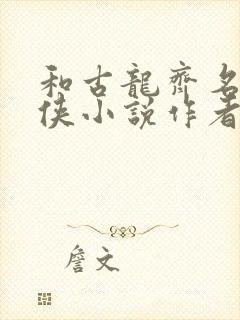 和古龍齊名
俠小說作者
詹文